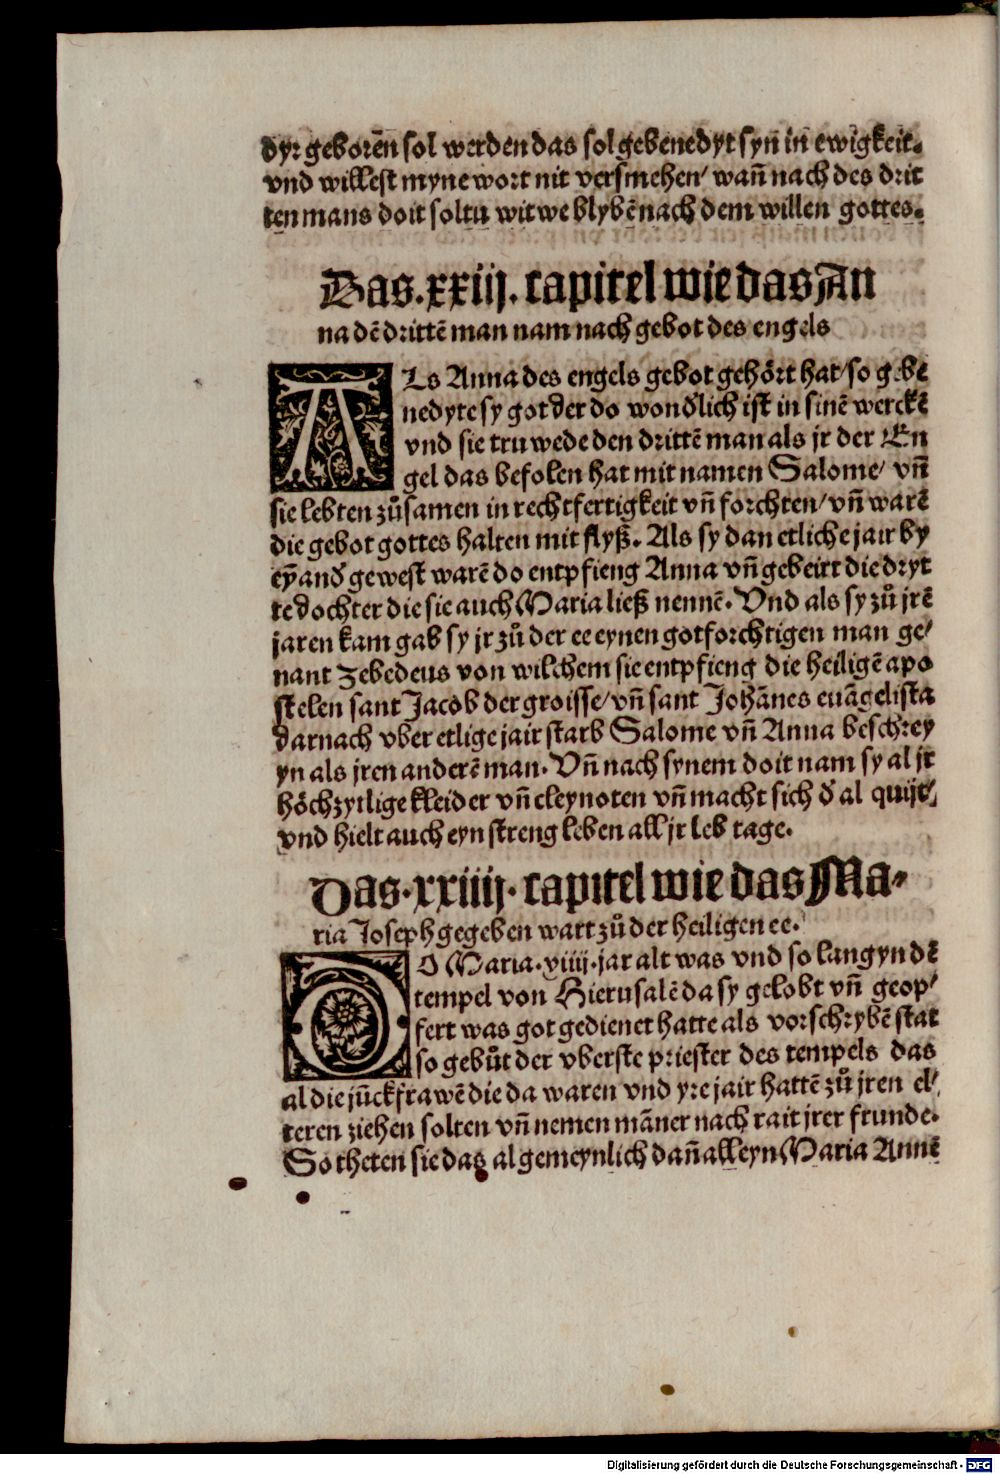 dyr geborēn sol werden das sol gebenedyt syn in ewigkeit.
vnd willest myne wort nit versmehen/ wañ nach des drit
ten mans doit soltu witwe blybē nach dem willen gottes.
Das .xxiij. capitel wie das An
na dē drittē man nam nach gebot des engels
ALs Anna des engels gebot gehört hat/ so gebe
nedyte sy got der do wondʼlich ist in sinē werckē
vnd sie truwede den drittē man als jr der En
gel das befolen hat mit namen Salome/ vñ
sie lebten zů samen in rechtfertigkeit vñ forchten/ vñ warē
die gebot gottes halten mit flyß. Als sy dan etliche jair by
eȳandʼ gewest warē do entpfieng Anna vñ gebeirt die dryt
te dochter die sie auch Maria ließ nennē. Vnd als sy zů jrē
jaren kam gab sy jr zů der ee eynen gotforchtigen man ge/
nant Zebedeus von wilchem sie entpfieng die heiligē apo
stelen sant Jacob der groisse/ vñ sant Johānes euāgelista
darnach vber etlige jair starb Salome vñ Anna beschrey
yn als jren anderē man. Vñ nach synem doit nam sy al jr
höchzytlige kleider vñ cleynoten vñ macht sich dʼ al quijt/
vnd hielt auch eyn streng leben all jr leb tage.
Das .xxiiij. capitel wie das Ma-
ria Joseph gegeben wart zů der heiligen ee.
DO Maria .xiiij. jar alt was vnd so lang yn dē
tempel von Hierusalē da sy gelobt vñ geop/
fert was got gedienet hatte als vorschrybē stat
so gebůt der vberste priester des tempels das
al die jūckfrawē die da waren vnd yre jair hattē zů jren el/
teren ziehen solten vñ nemen māner nach rait jrer frunde.
So theten sie das algemeynlich dañ alleyn Maria Annē
Digitalisierung gefördert durch die Deutsche Forschungsgemeinschaft - DFG